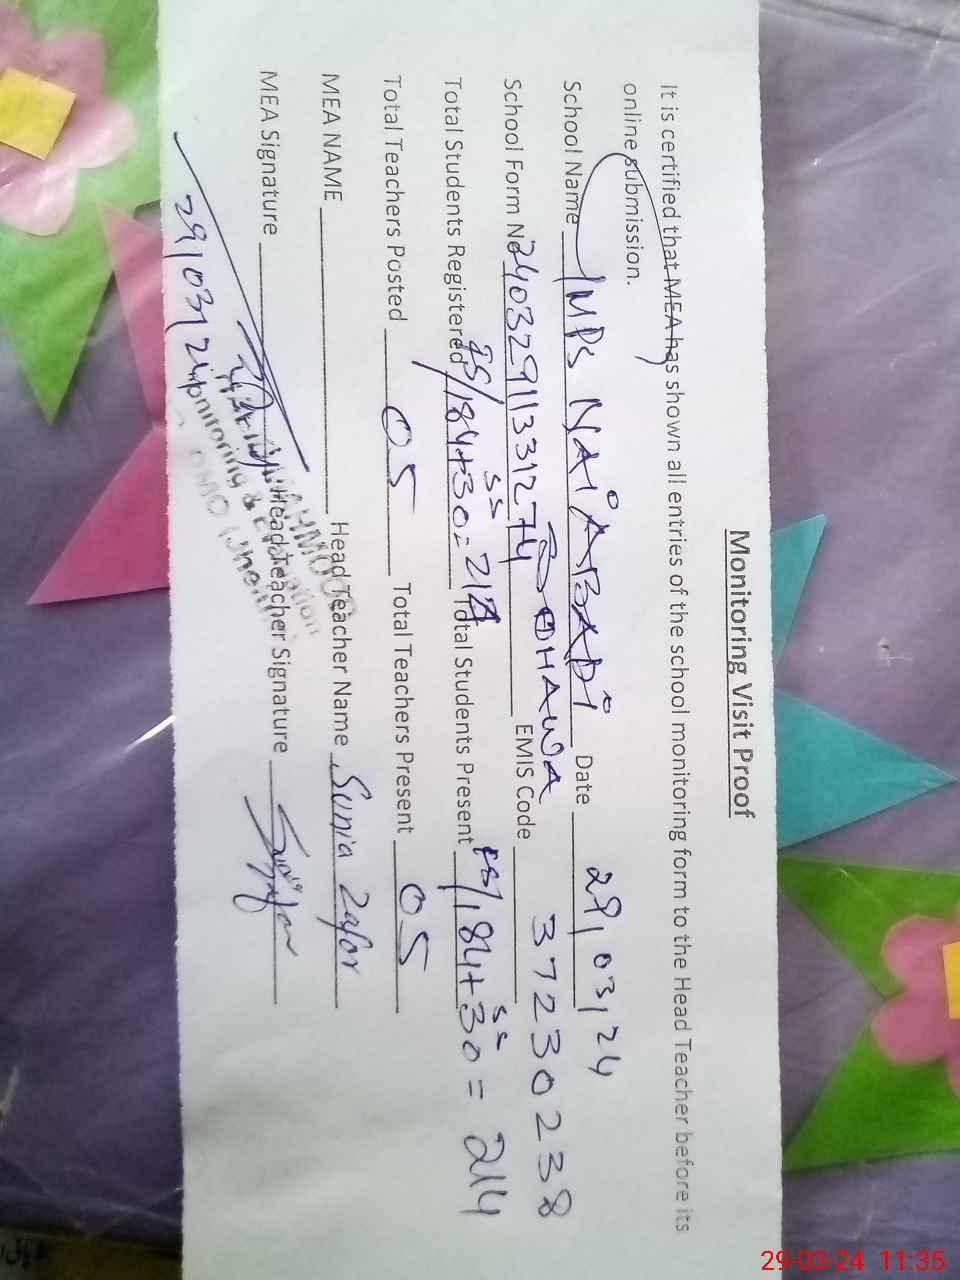 Monitoring Visit Proof
It is certified that MEA has shown all entries of the school monitoring form to the Head Teacher before its
online submission.
School Name MPS NAi ABADi Date 29/03/24
DHAWA
School Form No 24032911331274 EMIS Code 37230238
Total Students Registered 184+30=214 Total Students Present 184+30=214
Total Teachers Posted 05 Total Teachers Present 05
MEA NAME Head Teacher Name Sunia Zafar
MEA Signature Head Teacher Signature
29/03/24
Monitoring &
29-03-24 11:35